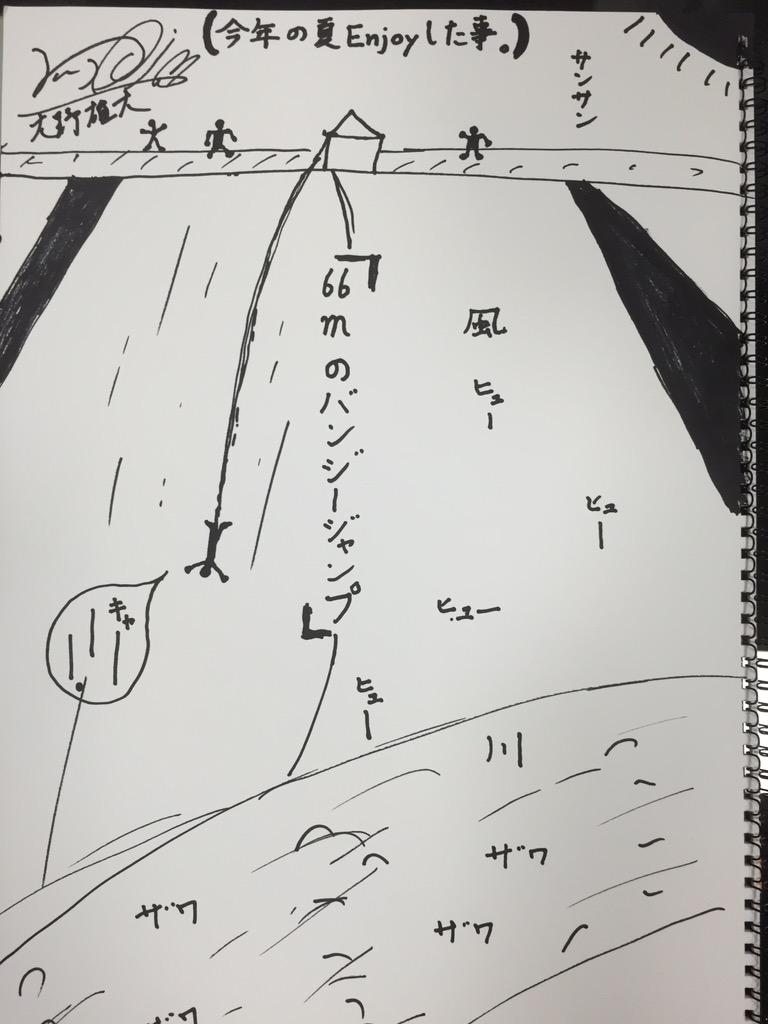 (今年の夏Enjoyした事。)
大野雄大
サンサン
「66mのバンジージャンプ」
風
ヒュー
ヒュー
ヒュー
ヒュー
キャーーー。
川
ザワ
ザワ
ザワ
ザワ